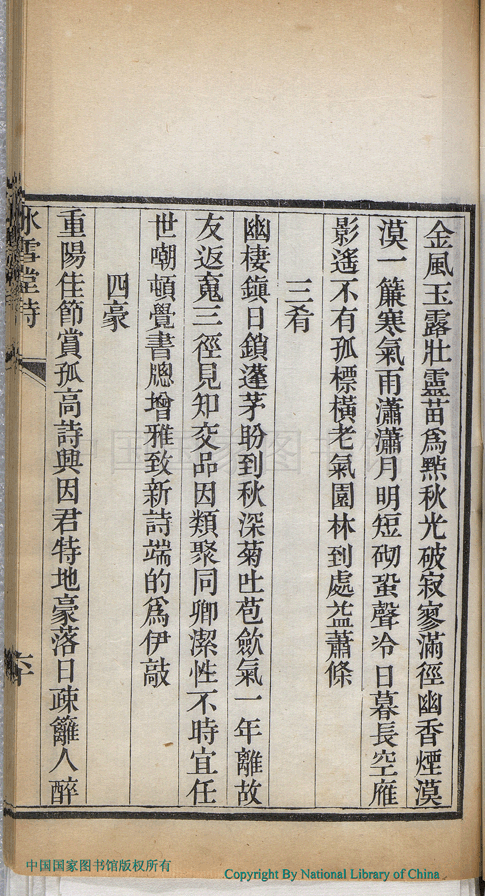 金風玉露壯靈苗爲㸃秋光破寂寥滿徑幽香煙漠
漠一簾寒氣雨瀟瀟月明短砌蛩聲冷日暮長空雁
影遙不有孤標橫老氣園林到處益蕭條
三肴
幽棲鎮日鎖蓬茅盼到秋深菊吐苞歛氣一年離故
友返䰟三徑見知交品因類聚同卿潔性不時宜任
世嘲頓覺書牕增雅致新詩端的爲伊敲
四豪
重陽佳節賞孤高詩興因君特地豪落日疎籬人醉
冰雪堂詩
中国国家图书馆版权所有
Copyright By National Library of China